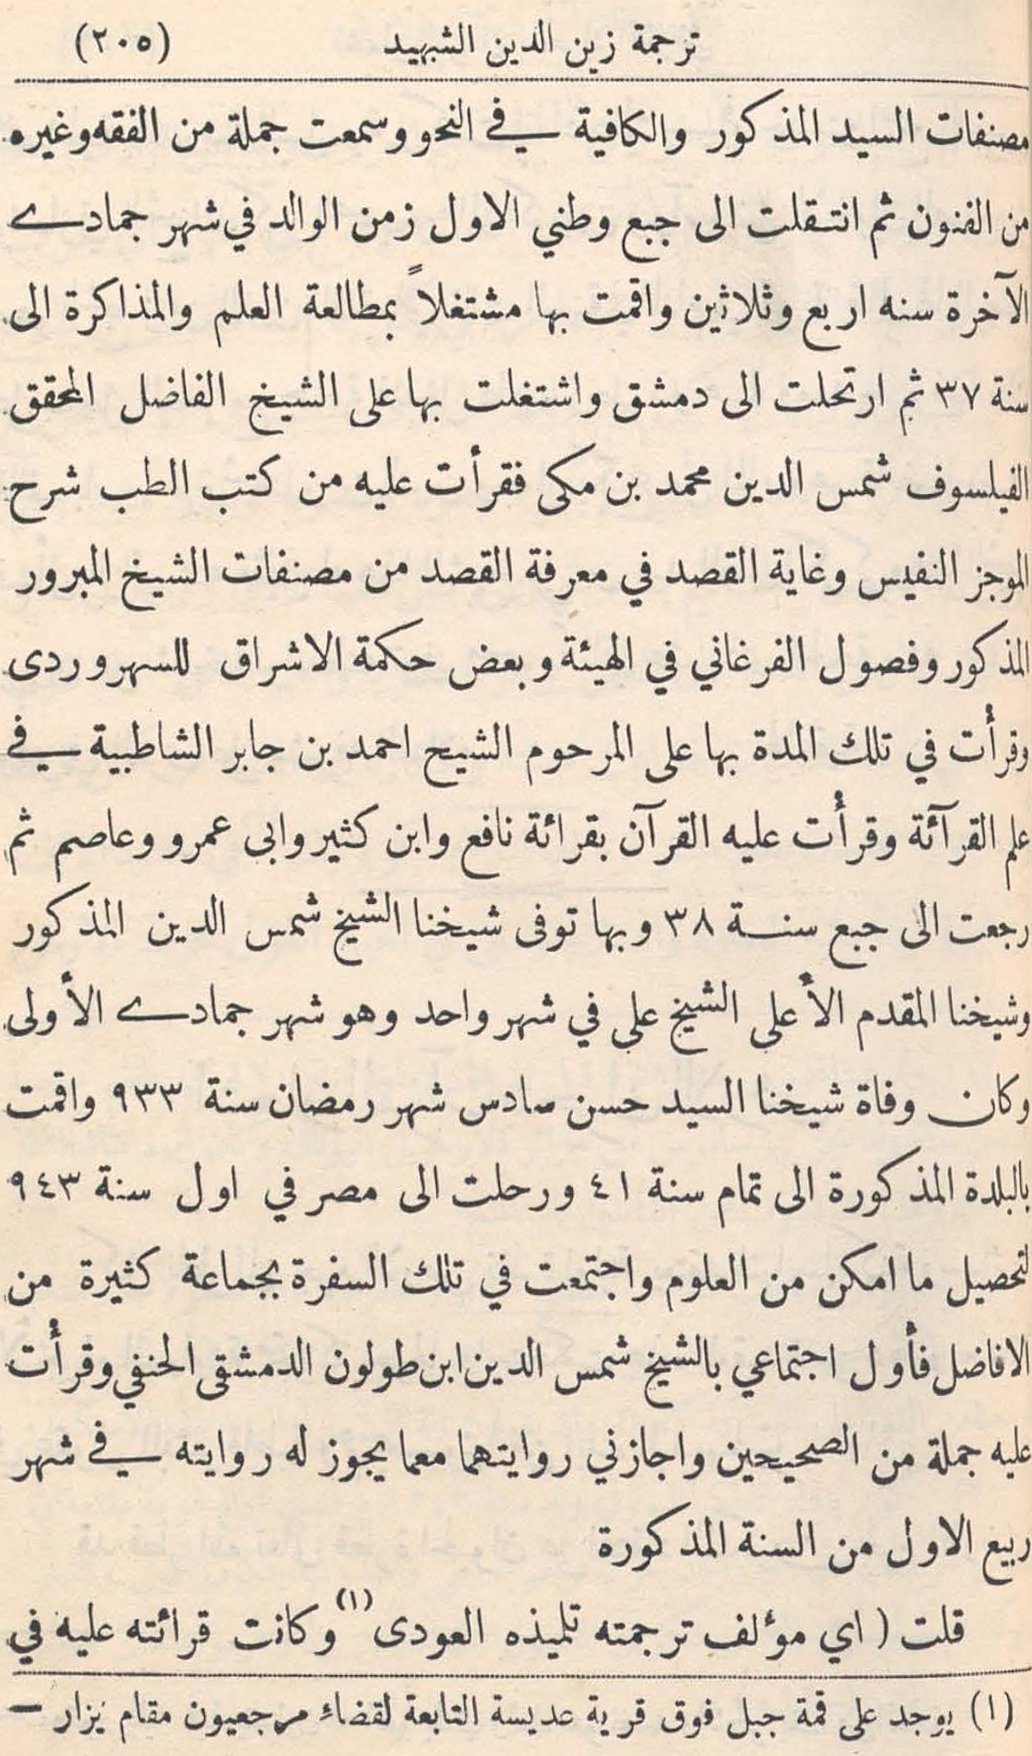 ترجمة زين الدين الشهيد (٢٠٥)
مصنفات السيد المذكور والكافية في النحو وسمعت جملة من الفقه وغيره
من الفنون ثم انتقلت الى جبع وطني الاول زمن الوالد في شهر جمادے
الآخرة سنه اربع وثلاثين واقمت بها مشتغلاً بمطالعة العلم والمذاكرة الى
سنة ٣٧ ثم ارتحلت الى دمشق واشتغلت بها على الشيخ الفاضل المحقق
الفيلسوف شمس الدين محمد بن مكى فقرأت عليه من كتب الطب شرح
الموجز النفيس وغاية القصد في معرفة القصد من مصنفات الشيخ المبرور
المذكور وفصول الفرغاني في الهيئة وبعض حكمة الاشراق للسهروردى
وقرأت في تلك المدة بها على المرحوم الشيح احمد بن جابر الشاطبية في
علم القرآئة وقرأت عليه القرآن بقرائة نافع وابن كثير وابى عمرو وعاصم ثم
رجعت الى جبع سنة ٣٨ وبها توفى شيخنا الشيخ شمس الدين المذكور
وشيخنا المقدم الأعلى الشيخ على في شهر واحد وهو شهر جمادے الأولى
وكان وفاة شيخنا السيد حسن سادس شهر رمضان سنة ٩٣٣ واقمت
بالبلدة المذكورة الى تمام سنة ٤١ ورحلت الى مصر في اول سنة ٩٤٣
لتحصيل ما امكن من العلوم واجتمعت في تلك السفرة بجماعة كثيرة من
الافاضل فأول اجتماعي بالشيخ شمس الدين ابن طولون الدمشقى الحنفي وقرأت
عليه جملة من الصحيحين واجازني روايتهما معما يجوز له روايته في شهر
ربيع الاول من السنة المذكورة
قلت ( اي مؤلف ترجمته تلميذه العودى (١) وكانت قرائته عليه في
(١) يوجد على قمة جبل فوق قرية عديسة التابعة لقضاء مرجعيون مقام يزار —